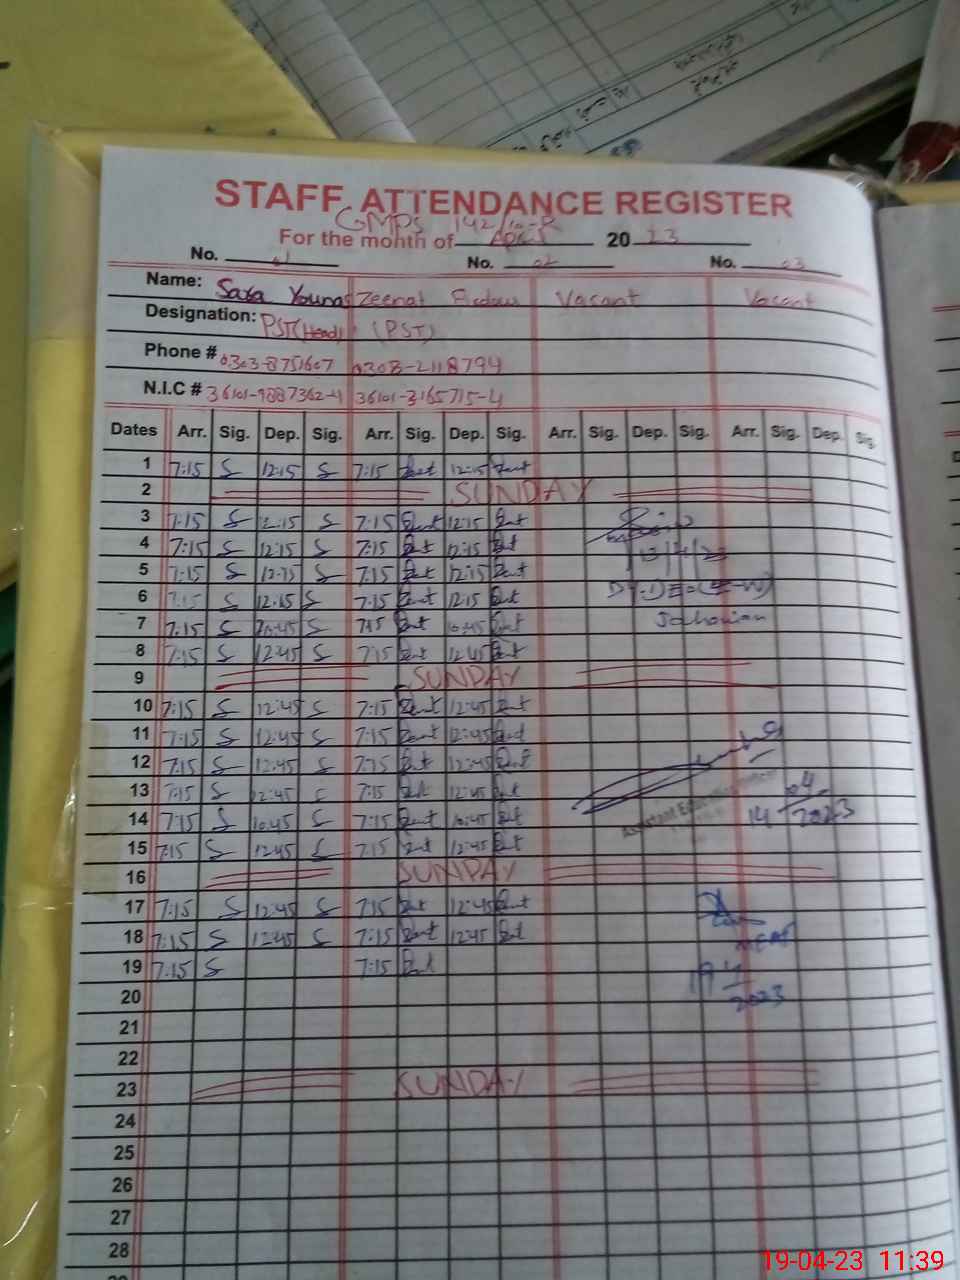 STAFF ATTENDANCE REGISTER
GMPS 142/10-R
For the month of April 2023
No. 01 No. 02 No. 03
Name: Sara Younas Zeenat Firdous Vacant Vacant
Designation: PST(Head) (PST)
Phone # 0303-8751607 0303-2118794
N.I.C # 36101-9887362-4 36101-3165715-4
Dates Arr. Sig. Dep. Sig. Arr. Sig. Dep. Sig. Arr. Sig. Dep. Sig. Arr. Sig. Dep. Sig.
1 7:15 S 12:15 S 7:15 Zent 12:15 Zent
2 SUNDAY
3 7:15 S 12:15 S 7:15 Zent 12:15 Zent
4 7:15 S 12:15 S 7:15 Zent 12:15 Zent
13/4/23
5 7:15 S 12:15 S 7:15 Zent 12:15 Zent
6 7:15 S 12:15 S 7:15 Zent 12:15 Zent
Dy.DEO(-W)
7 7:15 S 10:45 S 7:15 Zent 10:45 Zent
Jahanian
8 7:15 S 12:45 S 7:15 Zent 12:45 Zent
9 SUNDAY
10 7:15 S 12:45 S 7:15 Zent 12:45 Zent
11 7:15 S 12:45 S 7:15 Zent 12:45 Zent
12 7:15 S 12:45 S 7:15 Zent 12:45 Zent
13 7:15 S 12:45 S 7:15 Zent 12:45 Zent
Assistant Education
14 7:15 S 10:45 S 7:15 Zent 10:45 Zent
14 04 2023
15 7:15 S 12:45 S 7:15 Zent 12:45 Zent
16 SUNDAY
17 7:15 S 12:45 S 7:15 Zent 12:45 Zent
18 7:15 S 12:45 S 7:15 Zent 12:45 Zent
MEA
19 7:15 S 7:15 Zent
19 4
20
2023
21
22
23 SUNDAY
24
25
26
27
28
19-04-23 11:39